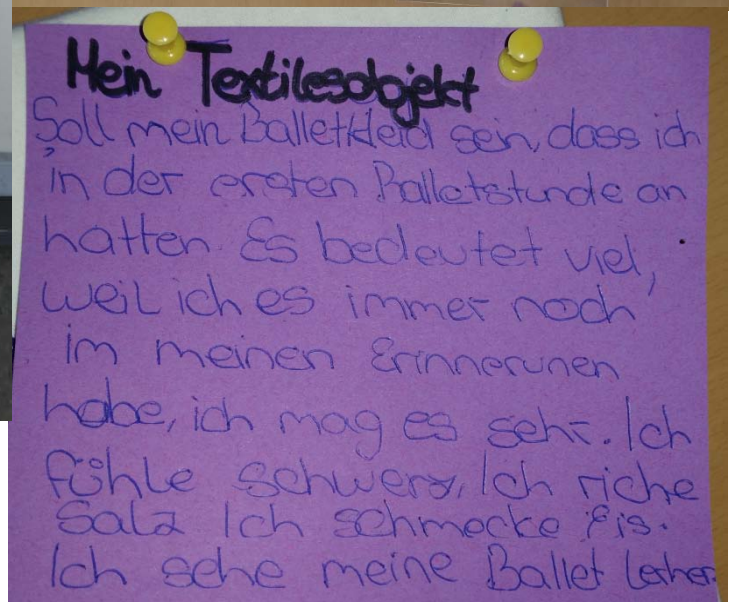 Mein Textilesobjekt
Soll mein Balletkleid sein, dass ich
in der ersten Balletstunde an
hatten. Es bedeutet viel,
weil ich es immer noch
im meinen Erinnerunen
habe, ich mag es sehr. Ich
fühle schwer, Ich riche
Salz Ich schmecke Eis.
Ich sehe meine Ballet